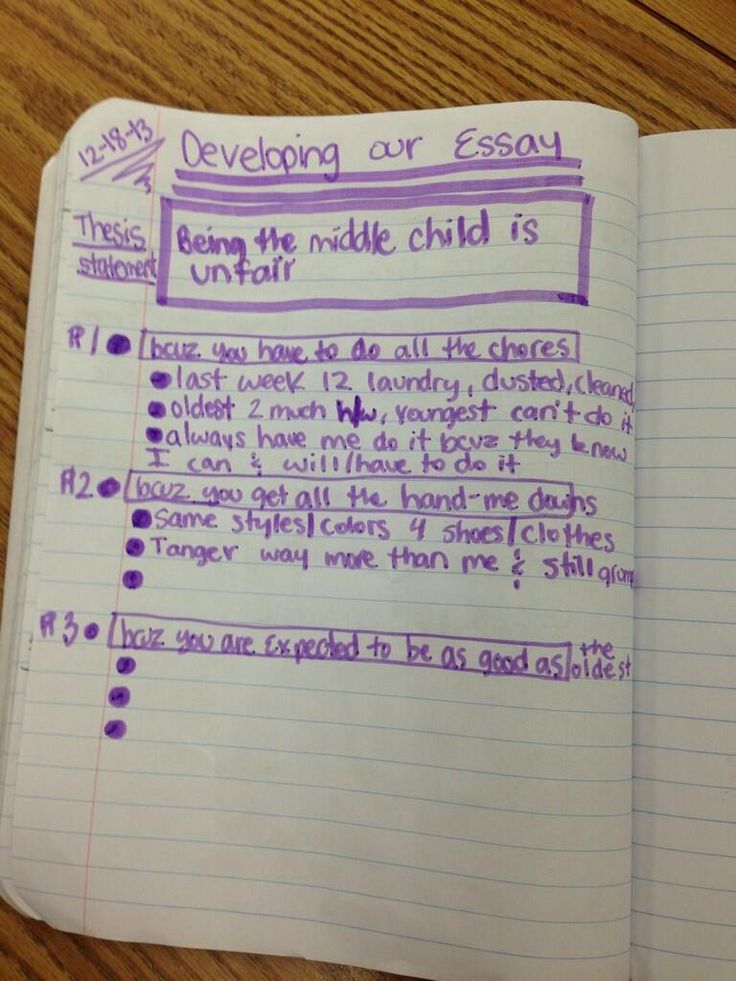 12-18-13
Developing our Essay
Thesis statement
Being the middle child is
unfair
#1 bcuz you have to do all the chores
last week 12 laundry, dusted, cleaned,
oldest 2 much h/w, youngest can't do it
always have me do it bcuz they know
I can & will/have to do it
#2 bcuz you get all the hand-me downs
Same styles/colors 4 shoes/clothes
way more than me & still
#3 bcuz you are expected to be as good as the
oldest